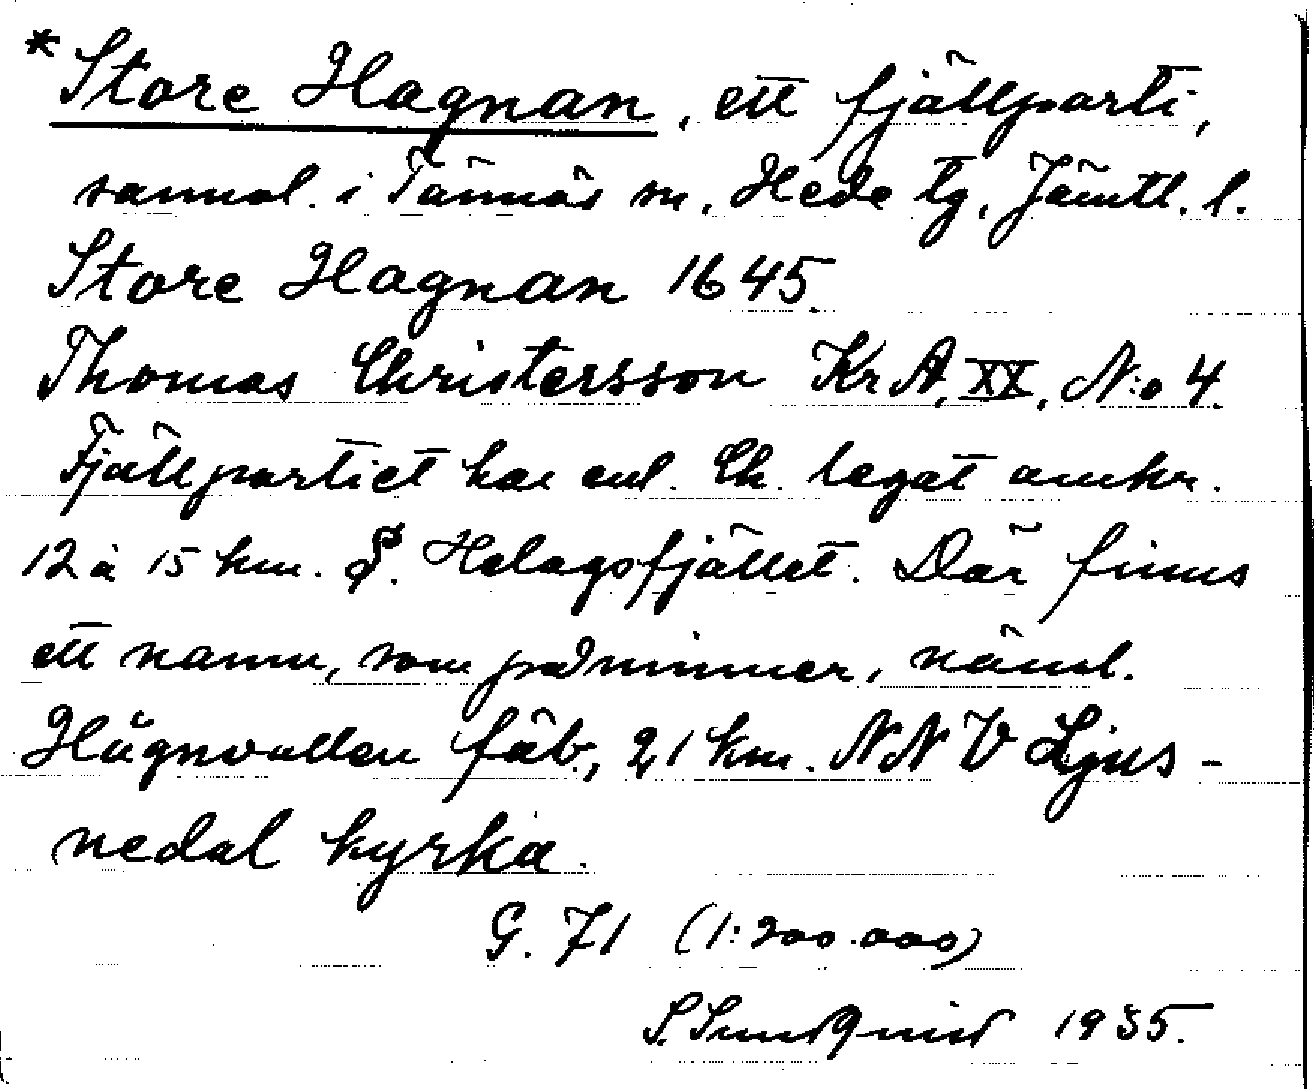 *Store Hagnan, ett fjällparti,
sannol. i Tännäs sn. Hede tg. Jämtl. l.
Store Hagnan 1645.
Thomas Christersson Kr A, XX, N:o 4.
Fjällpartiet har enl. Ch. legat omkr.
12 à 15 km. S. Helagsfjället. Där finns
ett namn, som påminner, näml.
Hågnvallen fäb., 21 km. NNV Ljus-
nedal kyrka.
G. 71 (1:200.000)
S. Sundqvist 1935.